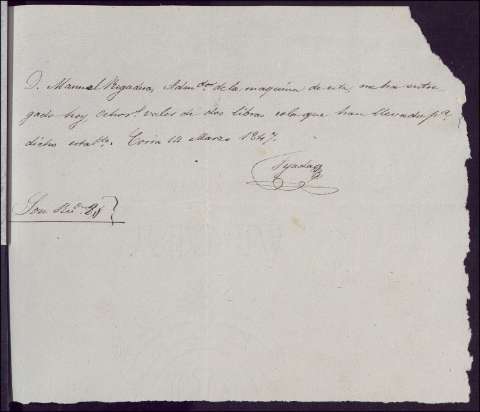 D. Manuel Regadera, Adm.or de la maquina de esta, me ha entre
gado hoy ochos.s vales de dos libras cola que han llevado p.a
dicho estab.to. Coria 14 Marzo 1847.
Tejada
Son R.s